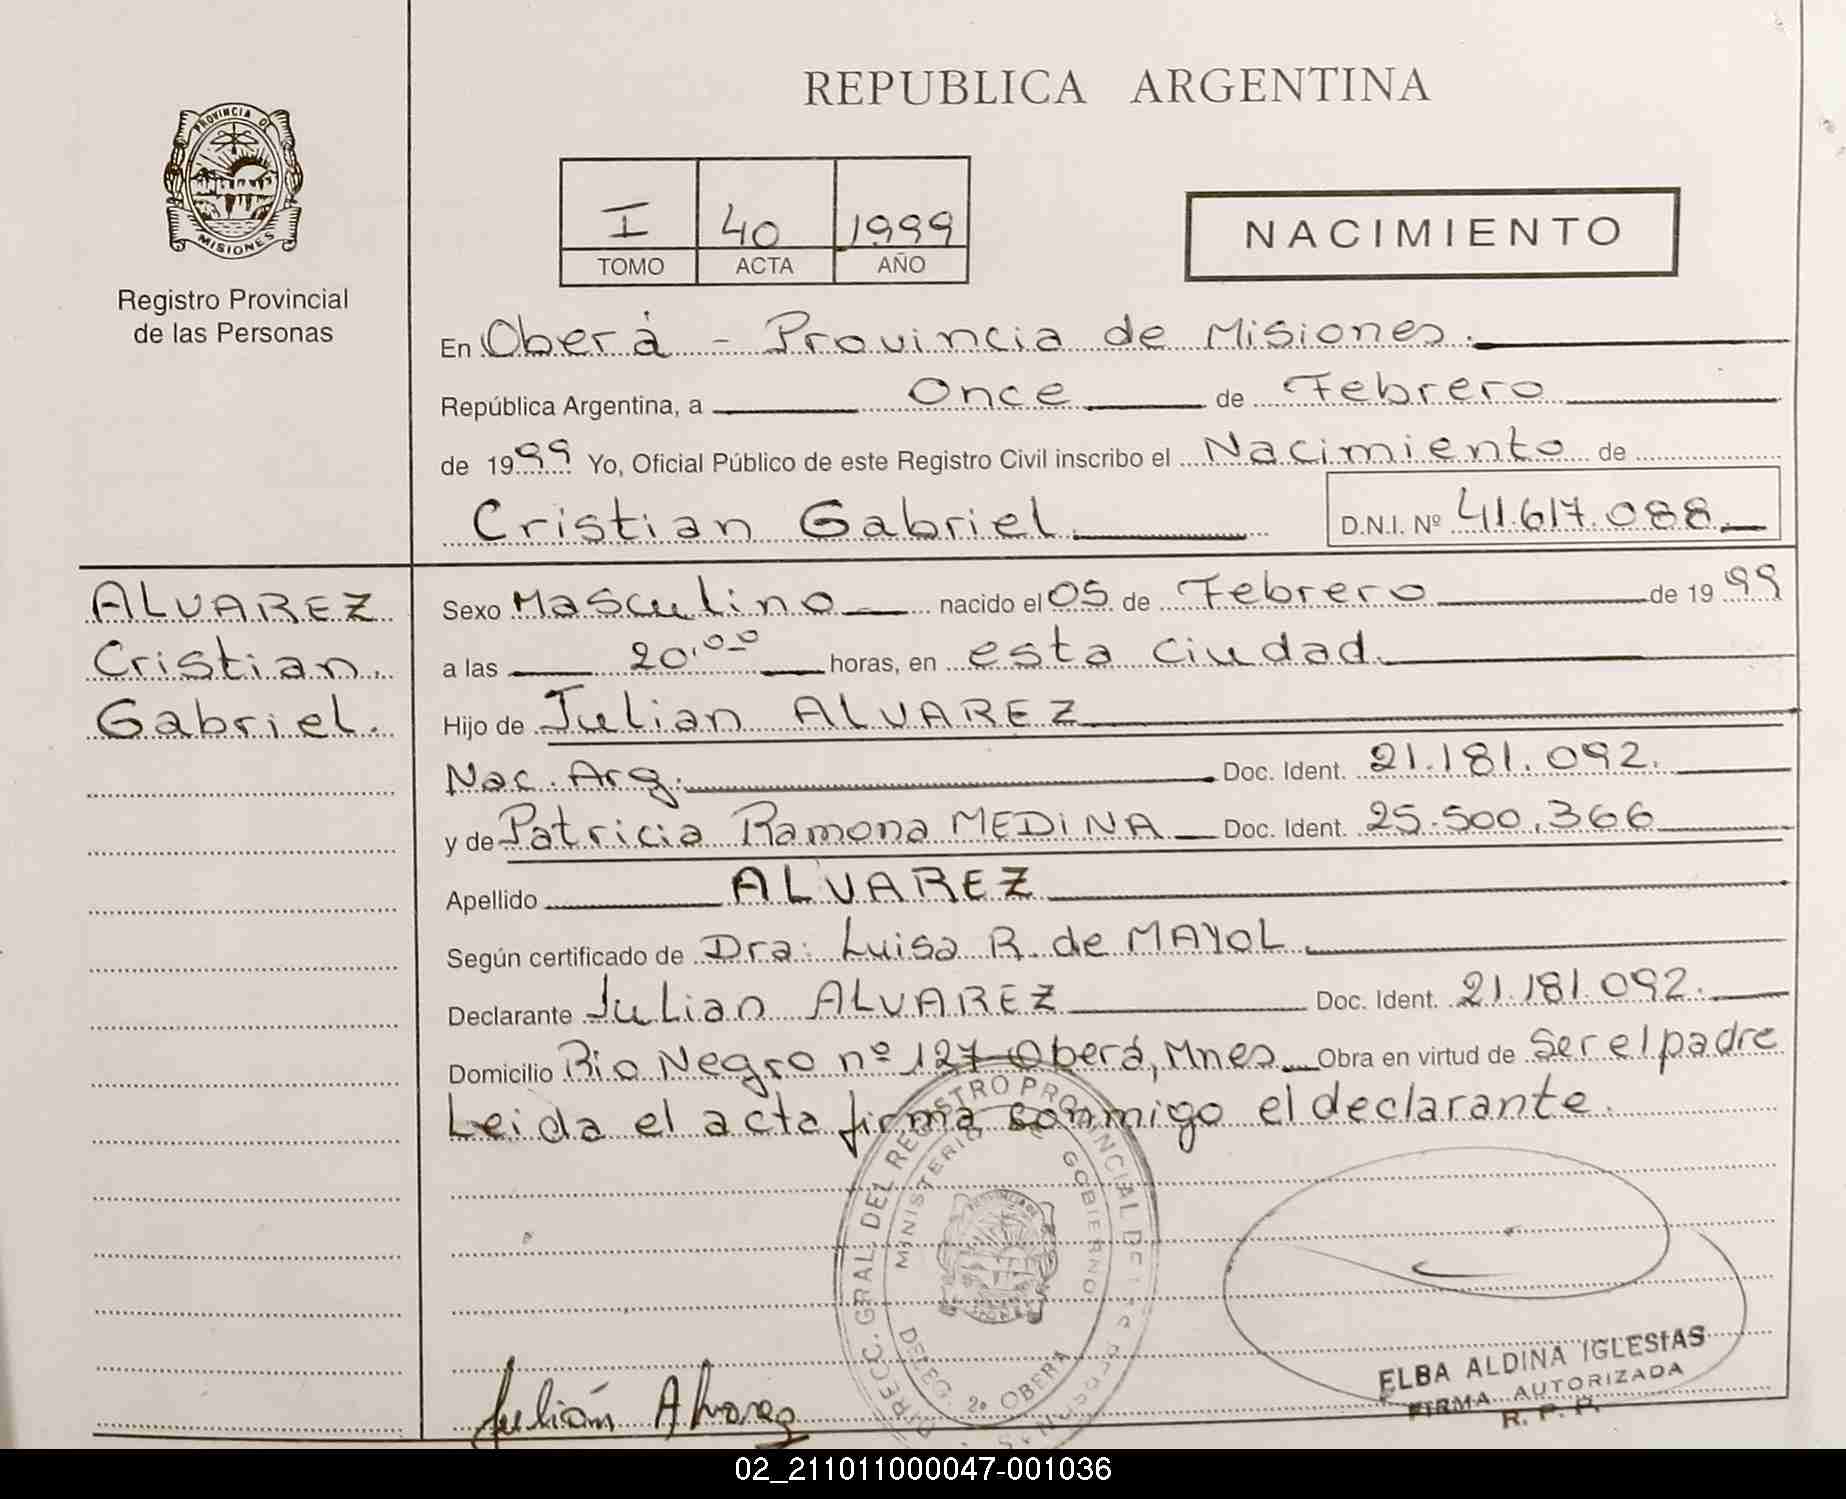 REPUBLICA ARGENTINA
PROVINCIA DE
MISIONES
Registro Provincial
de las Personas
I 40 1999
TOMO ACTA AÑO
NACIMIENTO
En Oberá - Provincia de Misiones.
República Argentina, a Once de Febrero
de 1999 Yo, Oficial Público de este Registro Civil inscribo el Nacimiento de
Cristian Gabriel D.N.I. Nº 41.617.088
ALVAREZ
Cristian
Gabriel.
Sexo Masculino nacido el 05 de Febrero de 1999
a las 20,00 horas, en esta ciudad.
Hijo de Julian ALVAREZ
Nac. Arg. Doc. Ident. 21.181.092.
y de Patricia Ramona MEDINA Doc. Ident. 25.500.366
Apellido ALVAREZ
Según certificado de Dra: Luisa R. de MAYOL
Declarante Julian ALVAREZ Doc. Ident. 21.181.092.
Domicilio Rio Negro nº 127 Oberá, Mnes Obra en virtud de Ser el padre
Leida el acta firma conmigo el declarante.
DIRECC. GRAL. DEL REGISTRO PROVINCIAL DE LAS PERSONAS
MINISTERIO DE GOBIERNO
DELEG. 2º OBERA
Julián Alvarez
ELBA ALDINA IGLESIAS
FIRMA AUTORIZADA
R. P. P.
02_211011000047-001036